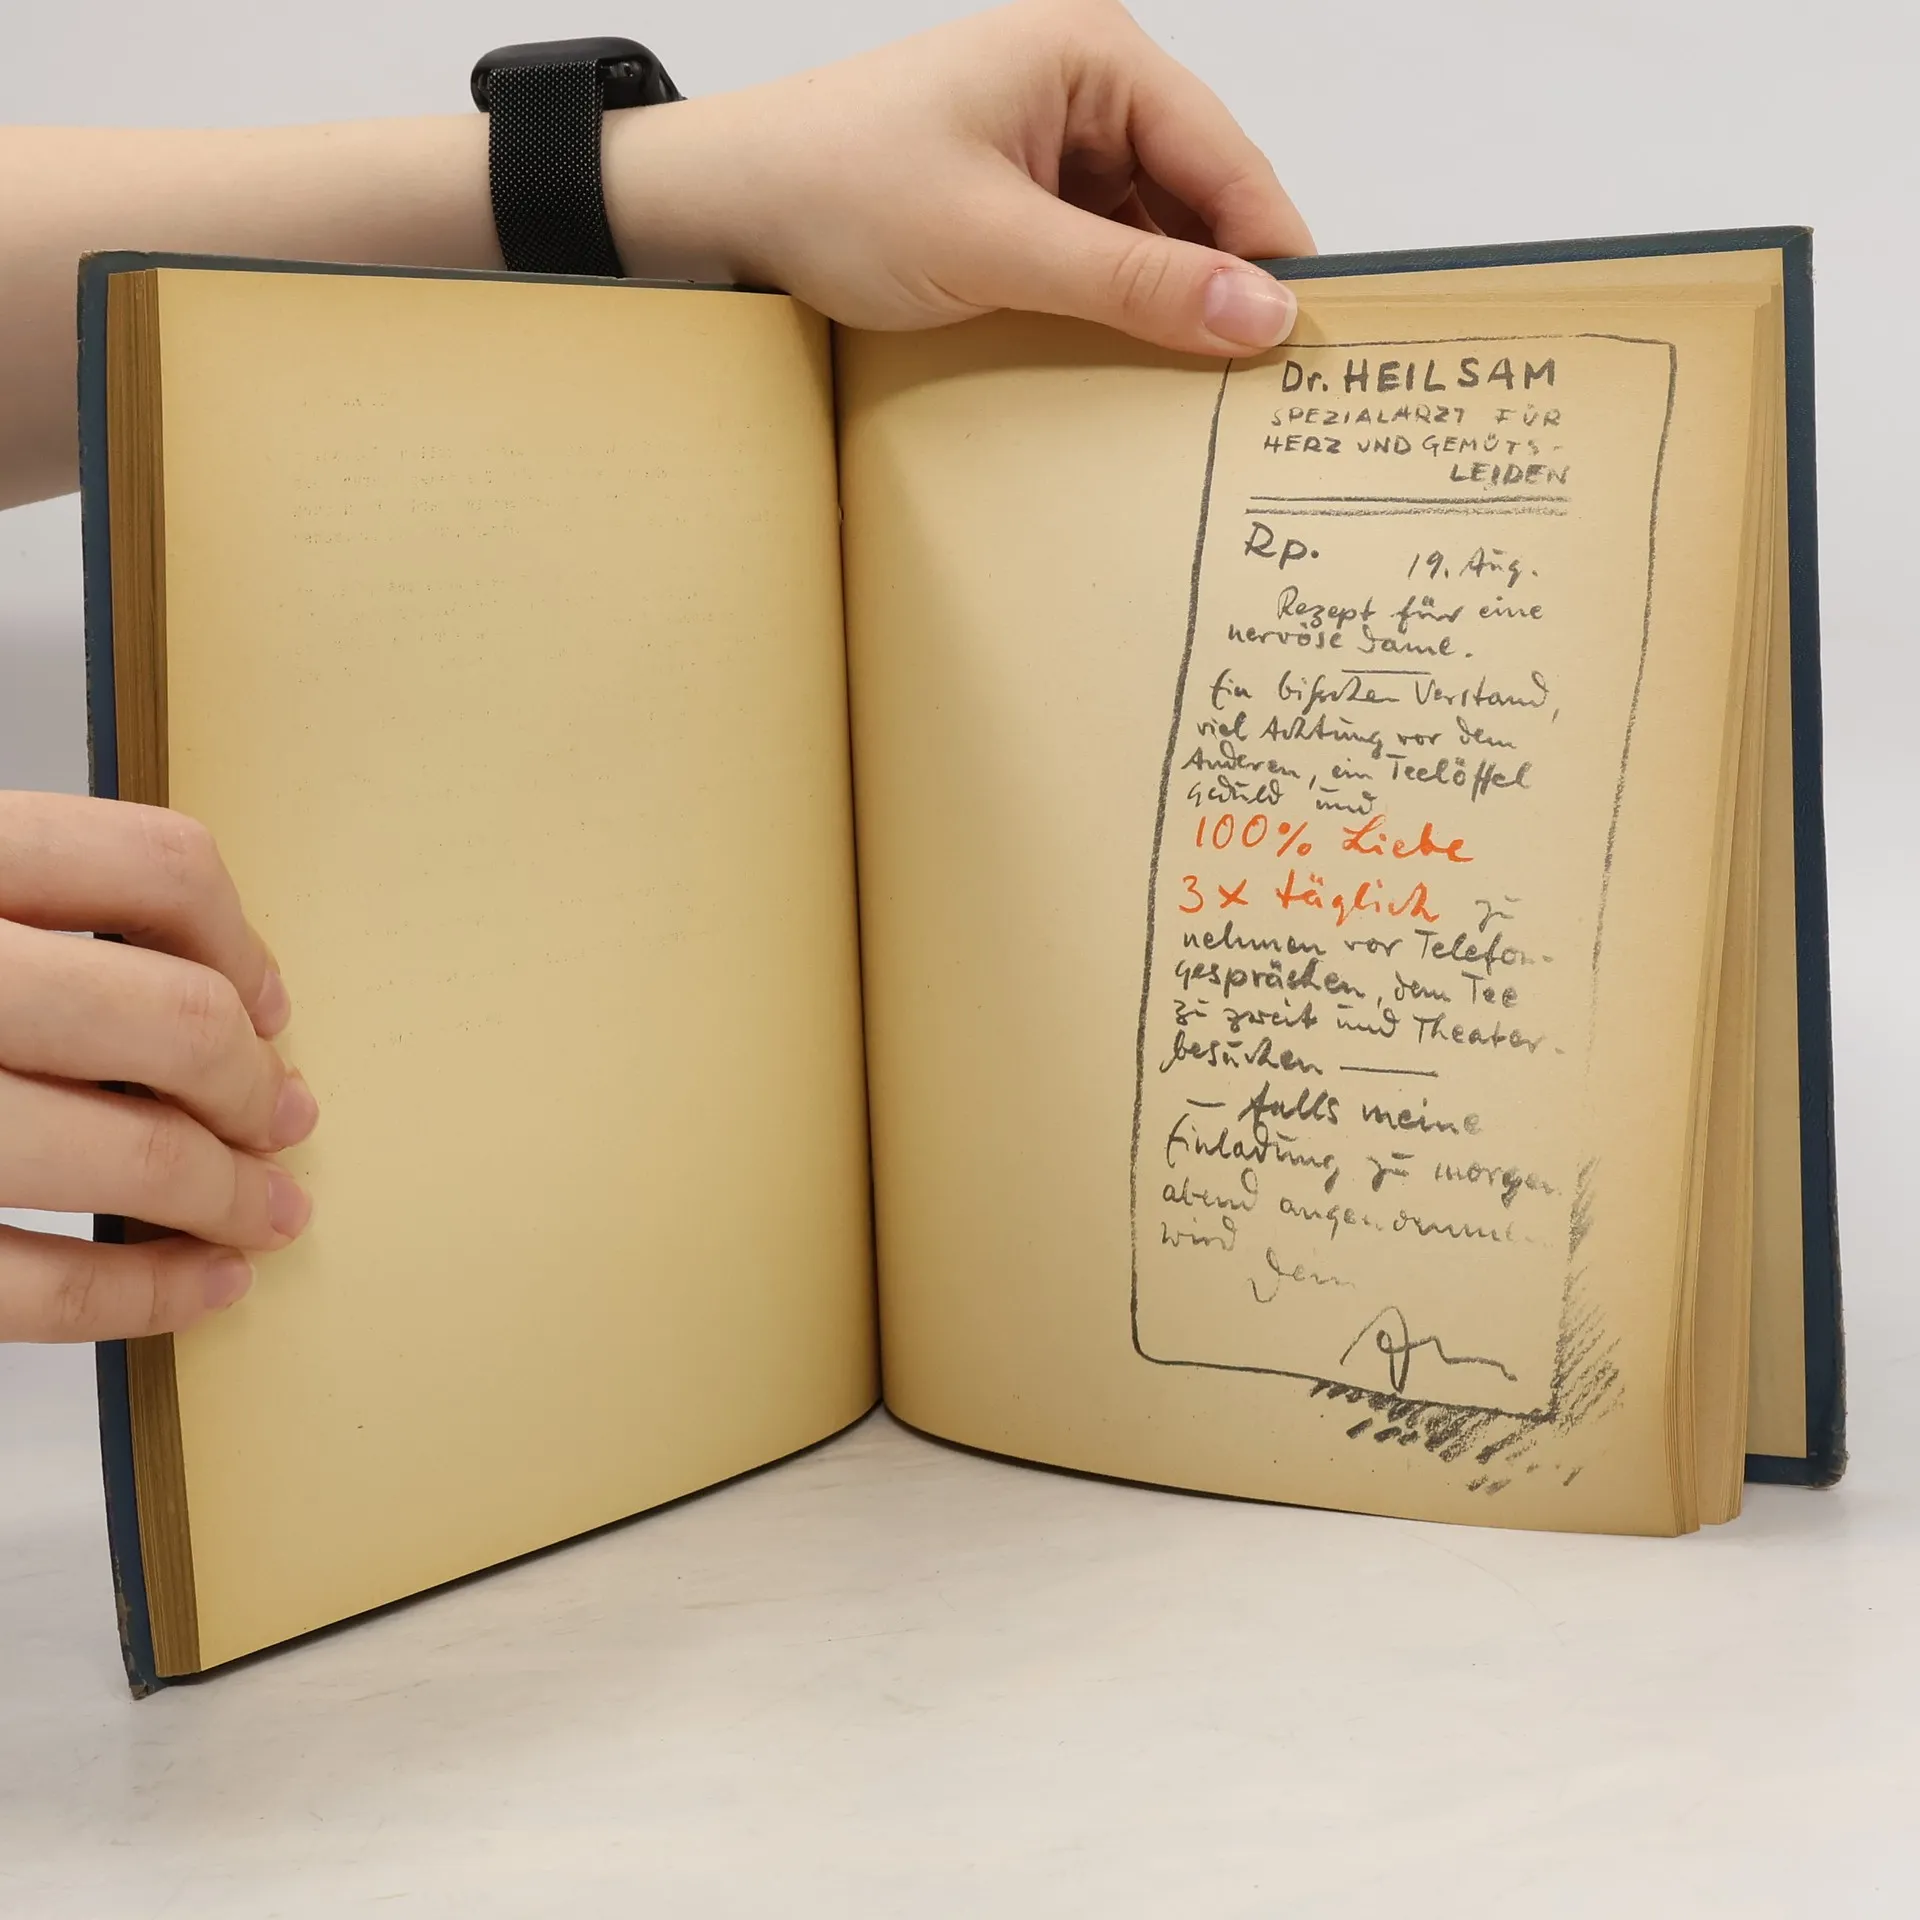 Dr. HEILSAM
SPEZIALARZT FÜR
HERZ UND GEMÜTS-
LEIDEN
Rp. 19. Aug.
Rezept für eine
nervöse Dame.
Ein bißchen Verstand,
viel Achtung vor dem
Anderen, ein Teelöffel
Geduld und
100% Liebe
3 x täglich zu
nehmen vor Telefon-
gesprächen, dem Tee
zu zweit und Theater-
besuchen —
— falls meine
Einladung zu morgen
abend angenommen
wird
Dein